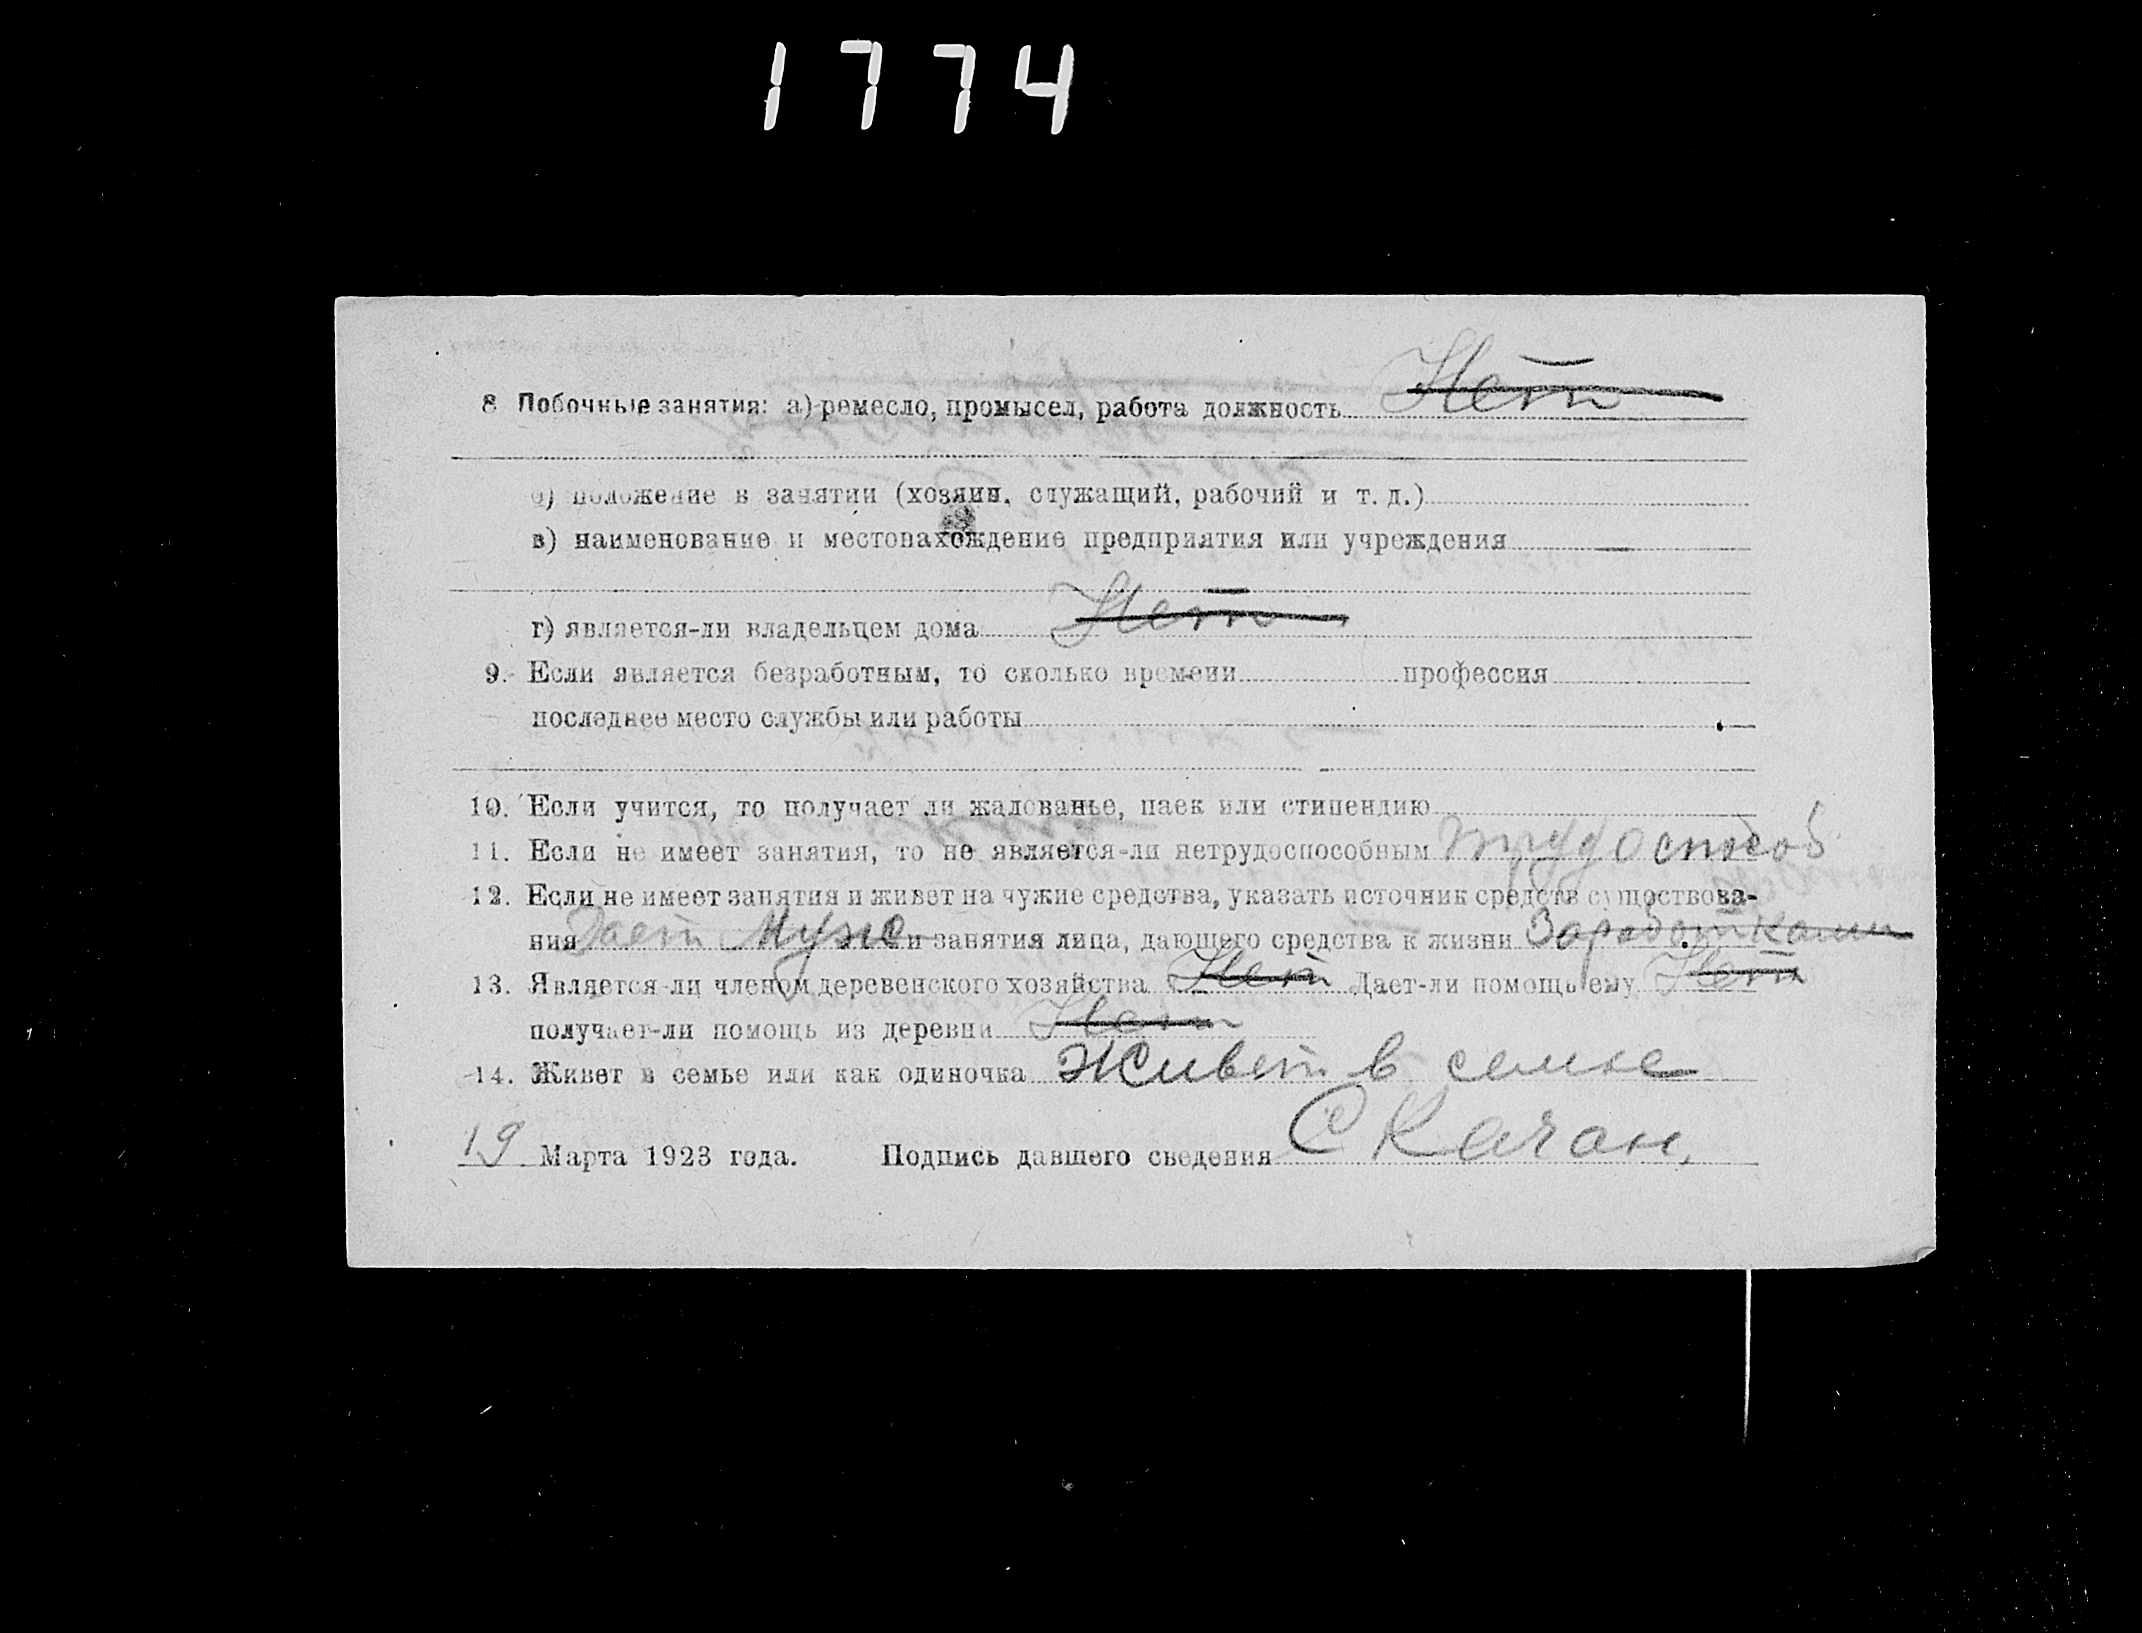 1774
8 Побочные занятия: а) ремесло, промысел, работа должность Нет
б) положение в занятии (хозяин, служащий, рабочий и т. д.)
в) наименование и местонахождение предприятия или учреждения —
г) является-ли владельцем дома Нет
9. Если является безработным, то сколько времени профессия
последнее место службы или работы
10. Если учится, то получает ли жалованье, паек или стипендию
11. Если не имеет занятия, то не является-ли нетрудоспособным трудоспособ
12. Если не имеет занятия и живет на чужие средства, указать источник средств существова-
ния Дает Муж и занятия лица, дающего средства к жизни Заработками
13. Является-ли членом деревенского хозяйства Нет Дает-ли помощь ему Нет
получает-ли помощь из деревни Нет
14. Живет в семье или как одиночка Живет в семье
19 Марта 1923 года. Подпись давшего сведения С Качан.